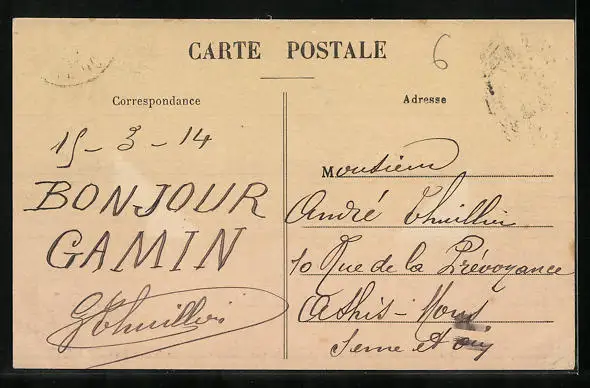 CARTE POSTALE
6
Correspondance
Adresse
15 - 3 - 14
BONJOUR
GAMIN
GThuillier
Monsieur
André Thuillier
10 Rue de la Prévoyance
Athis-Mons
Seine et Oise